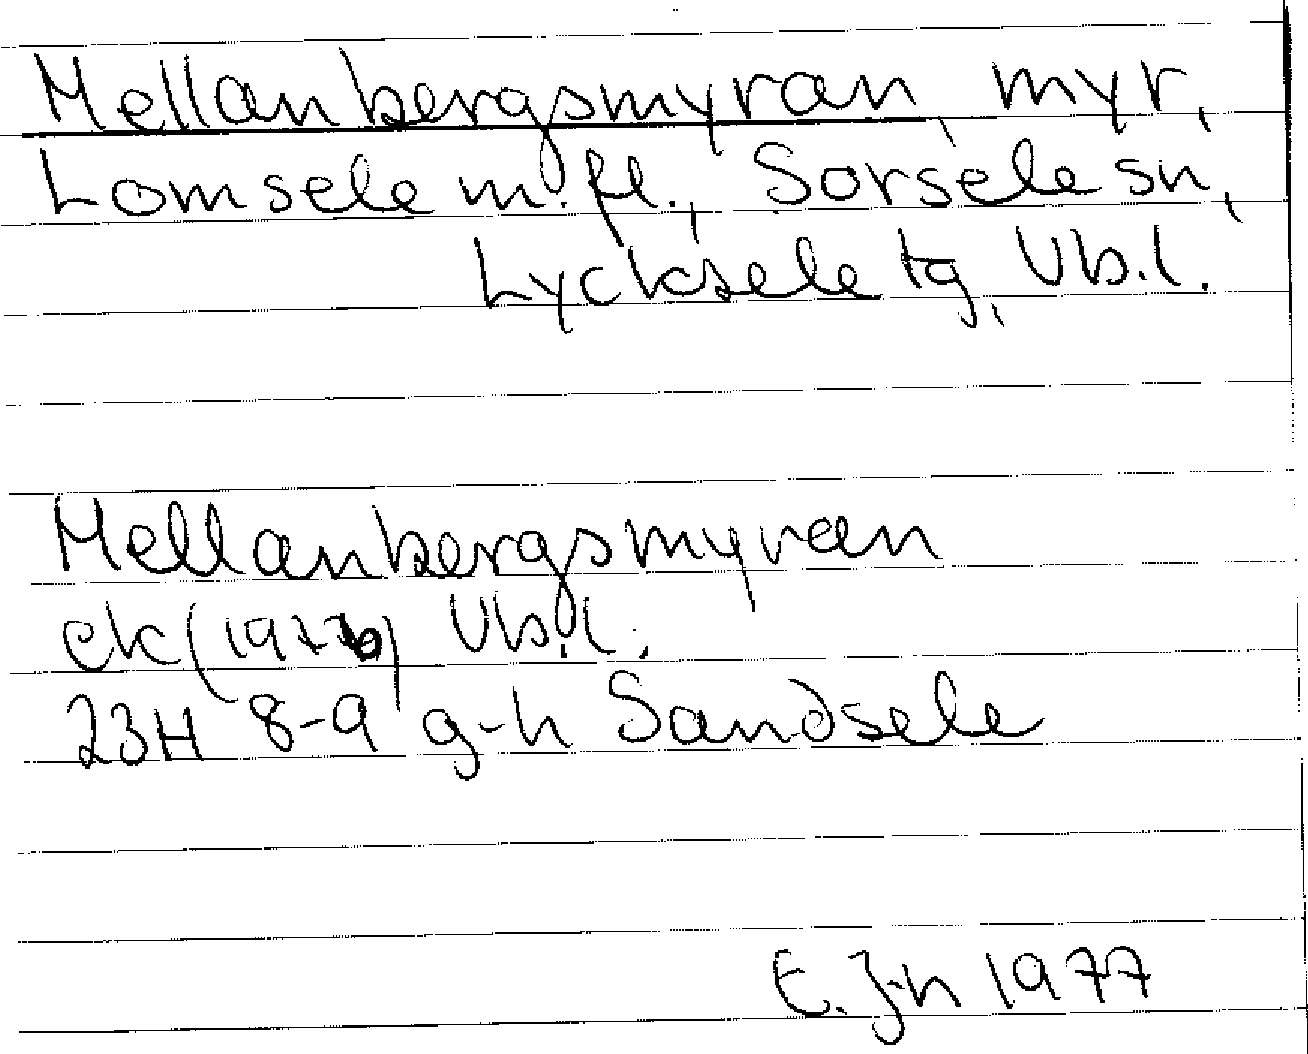 Mellanbergsmyran, myr,
Lomsele m.fl., Sorsele sn,
Lycksele tg, Vb.l.
Mellanbergsmyran
ek Vb.l.
23H 8-9 g-h Sandsele
E. J-n 1977